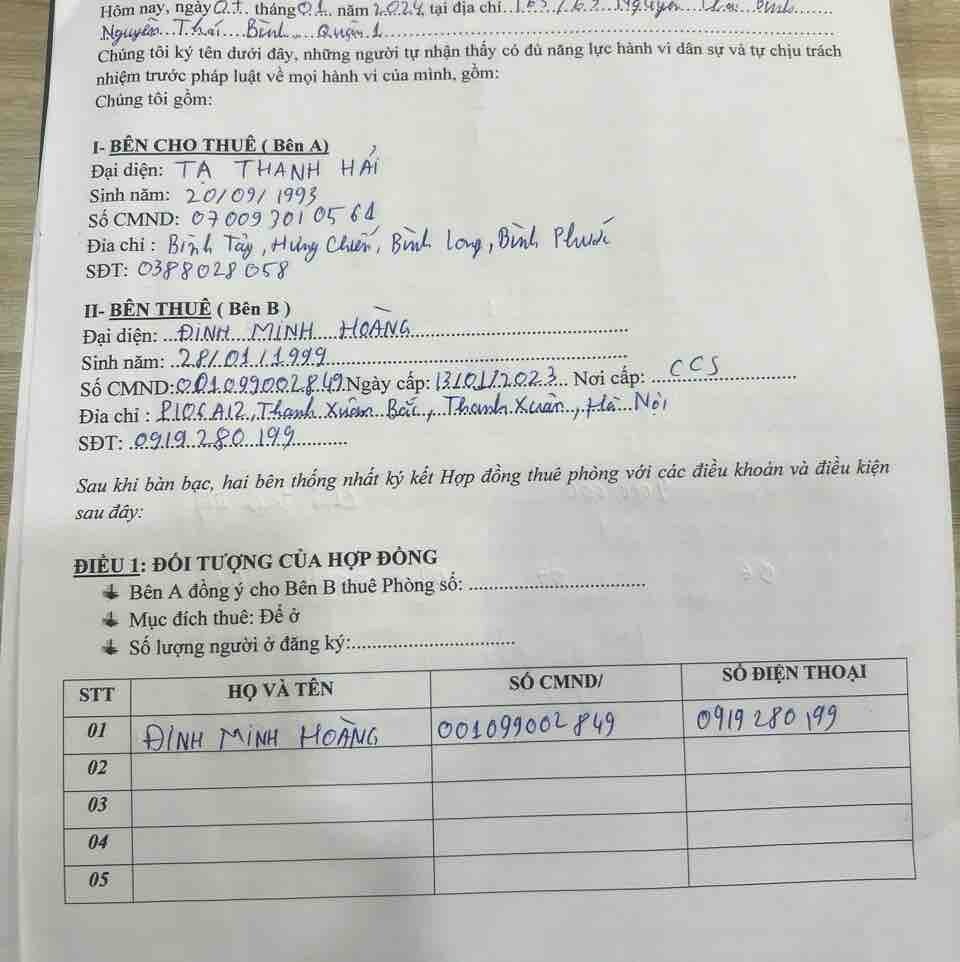 Hôm nay, ngày 07. tháng 01. năm 2024, tại địa chỉ
Nguyễn Thái Bình, Quận 1
Chúng tôi ký tên dưới đây, những người tự nhận thấy có đủ năng lực hành vi dân sự và tự chịu trách
nhiệm trước pháp luật về mọi hành vi của mình, gồm:
Chúng tôi gồm:
I- BÊN CHO THUÊ ( Bên A)
Đại diện: TẠ THANH HẢI
Sinh năm: 20/09/1993
Số CMND: 070093010561
Đia chỉ : Bình Tây, Hưng Chiến, Bình Long, Bình Phước
SĐT: 0388028058
II- BÊN THUÊ ( Bên B )
Đại diện: ĐINH MINH HOÀNG
Sinh năm: 28/01/1999
Số CMND: 001099002849 Ngày cấp: 13/01/2023 Nơi cấp: CCS
Đia chỉ : P106 A12, Thanh Xuân Bắc, Thanh Xuân, Hà Nội
SĐT: 0919 280 199
Sau khi bàn bạc, hai bên thống nhất ký kết Hợp đồng thuê phòng với các điều khoản và điều kiện
sau đây:
ĐIỀU 1: ĐỐI TƯỢNG CỦA HỢP ĐỒNG
Bên A đồng ý cho Bên B thuê Phòng số:
Mục đích thuê: Để ở
Số lượng người ở đăng ký:
STT HỌ VÀ TÊN SỐ CMND/ SỐ ĐIỆN THOẠI
01 ĐINH MINH HOÀNG 001099002849 0919 280 199
02
03
04
05